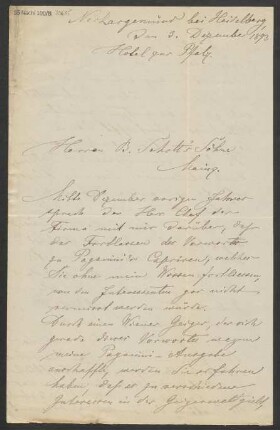 Neckargemünd bei Heidelberg
den 3. Dezember 1893
Hotel zur Pfalz.
Herren B. Schott's Söhne
Mainz.
Mitte Dezember vorigen Jahres
sprach der Herr Chef der
Firma mit mir darüber, daß
das Fortlassen des Vorworts
zu Paganini's Capricen, welches
Sie ohne mein Wissen fortliessen,
von den Interessenten gar nicht
vermisst werden würde.
Durch einen Wiener Geiger, der sich
gerade dieses Vorwortes wegen
meine Paganini-Ausgabe
anschaffte, werden Sie erfahren
haben, daß es ja verschiedene
Interessen in der Geigenwelt giebt,